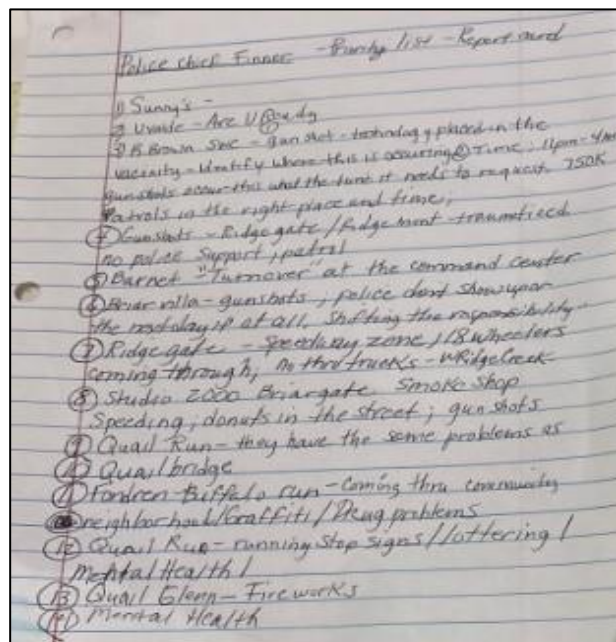 Police chief Finner - Priority list - Report card
1) Sunny's -
2) Uvalde - Are U Ready
3) B. Brown Swc - gun shot - technology placed in the
vacinity - Identify where this is occuring @ Time; 11pm - 4AM
gunshots occur this what the time it needs to request 750K
Patrols in the right place and time;
4 Gunshots - Ridgegate / Ridgemont - traumatized
no police support, patrol
5 Burnet "Turnover" at the command center
6 Briar villa - gunshots, police dont show up or
the next day if at all, shifting the responsibility
7 Ridgegate - Speedway zone, 18 wheelers
coming through, no thru trucks - W Ridge Creek
8 Studio 2000 Briargate Smoke Shop
Speeding; donuts in the street; gun shots
9 Quail Run - they have the same problems as
10 Quail bridge
11 Fondren - Buffalo run - coming thru community
neighborhood / Graffiti / Drug problems
12 Quail Run - running stop signs / lottering /
Mental Health /
13 Quail Glenn - Fireworks
14 Mental Health